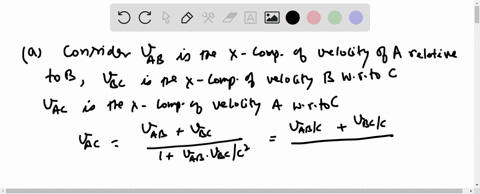 (a) Consider V_AB is the x-comp. of velocity of A relative
to B, V_BC is the x-comp. of velocity B w.r.to C
V_AC is the x-comp. of velocity A w.r.to C
V_AC = (V_AB + V_BC) / (1 + V_AB.V_BC/c²) = V_AB/c + V_BC/c